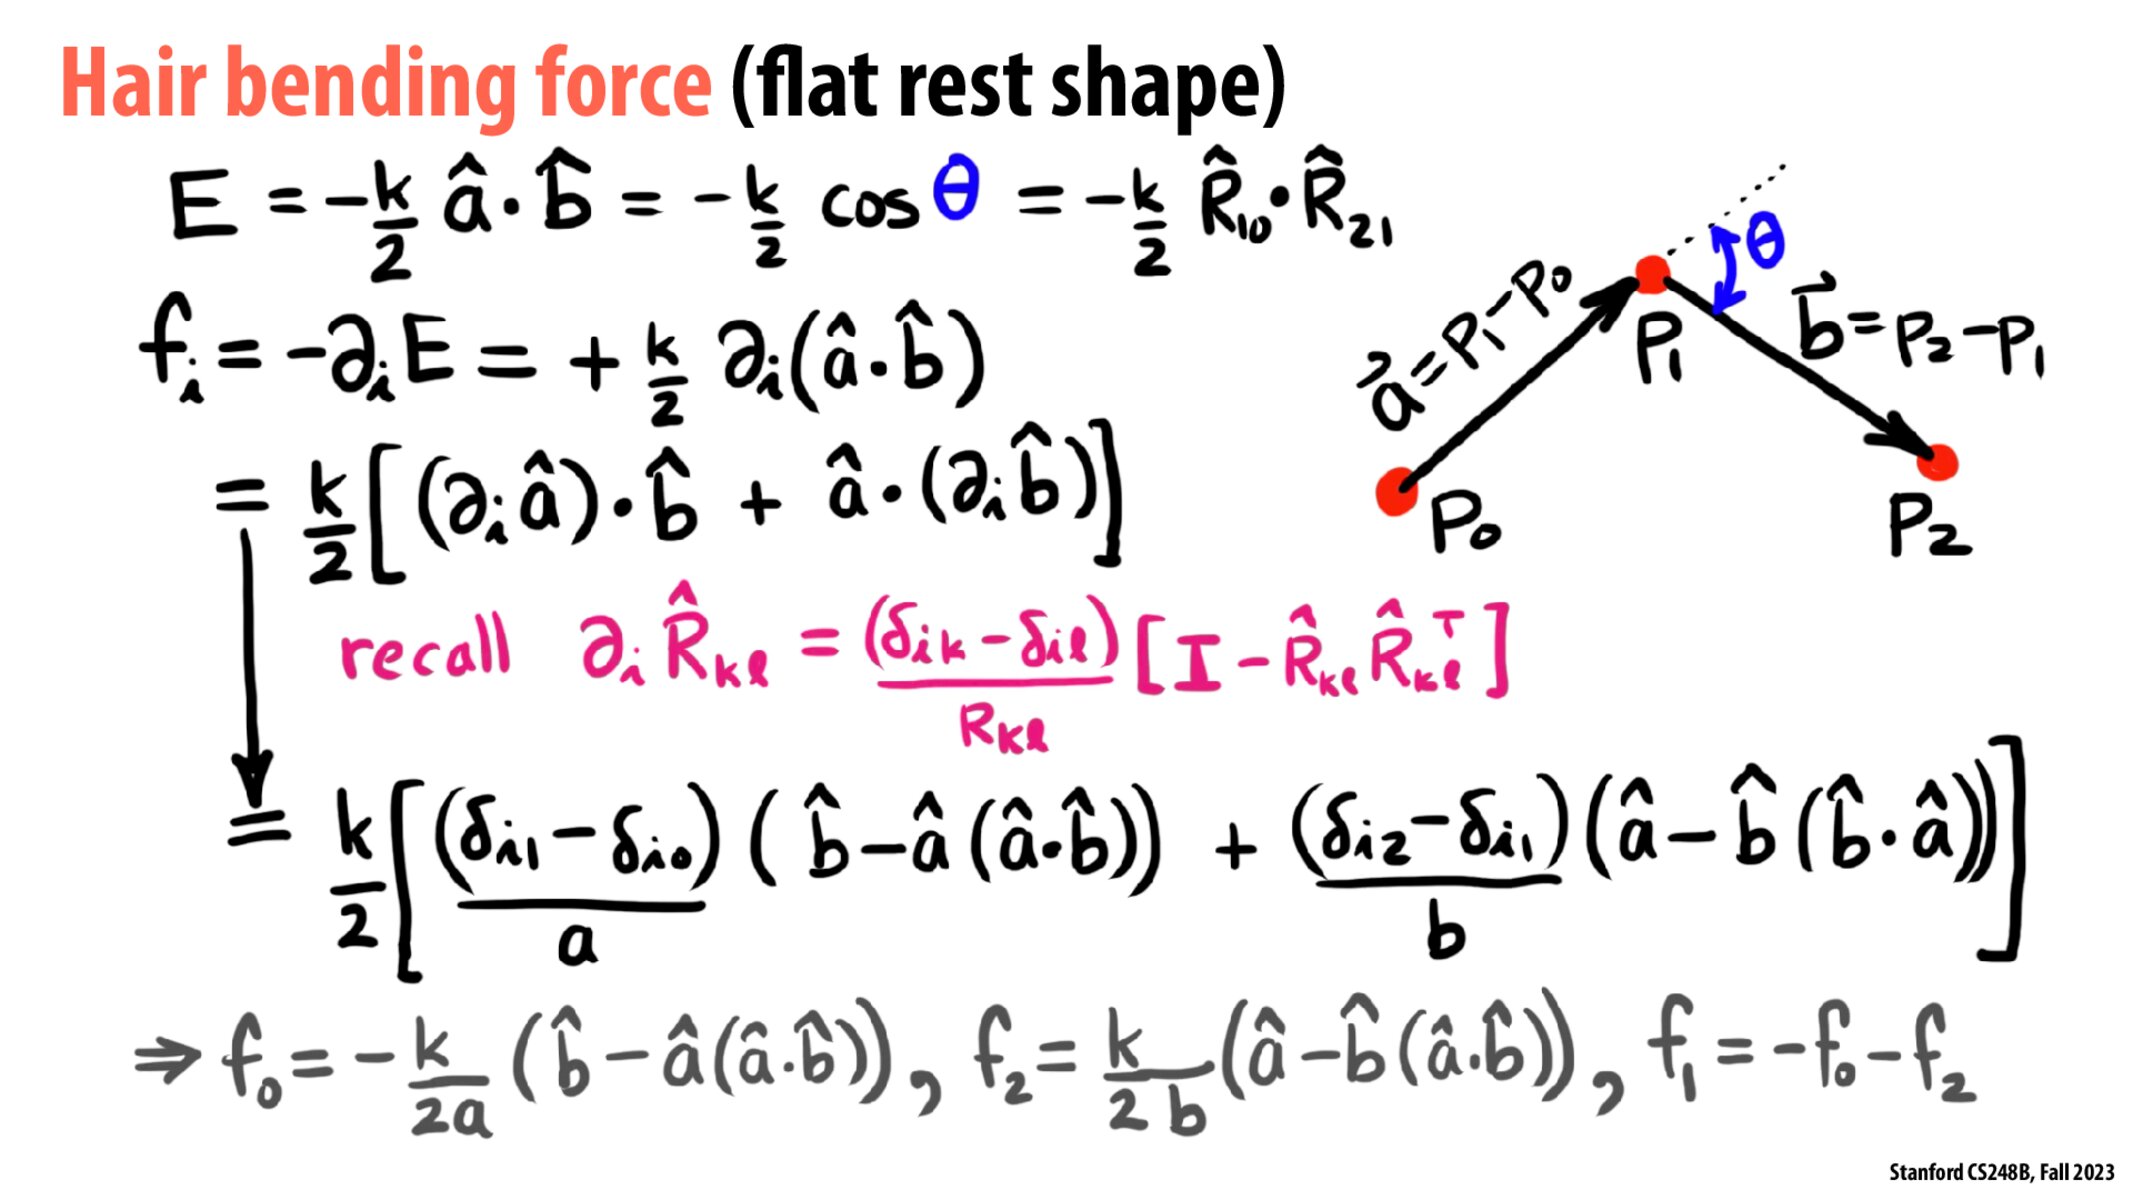 Hair bending force (flat rest shape)
E = -k/2 â·b̂ = -k/2 cos θ = -k/2 R̂₁₀·R̂₂₁
fᵢ = -∂ᵢE = +k/2 ∂ᵢ(â·b̂)
= k/2[(∂ᵢâ)·b̂ + â·(∂ᵢb̂)]
recall ∂ᵢR̂ₖₗ = (δᵢₖ-δᵢₗ)/Rₖₗ [I - R̂ₖₗR̂ₖₗᵀ]
= k/2[(δᵢ₁-δᵢ₀)/a (b̂-â(â·b̂)) + (δᵢ₂-δᵢ₁)/b (â-b̂(b̂·â))]
⇒ f₀ = -k/2a (b̂-â(â·b̂)), f₂ = k/2b (â-b̂(â·b̂)), f₁ = -f₀-f₂
θ
a⃗ = P₁-P₀
P₁
b⃗ = P₂-P₁
P₀
P₂
Stanford CS248B, Fall 2023